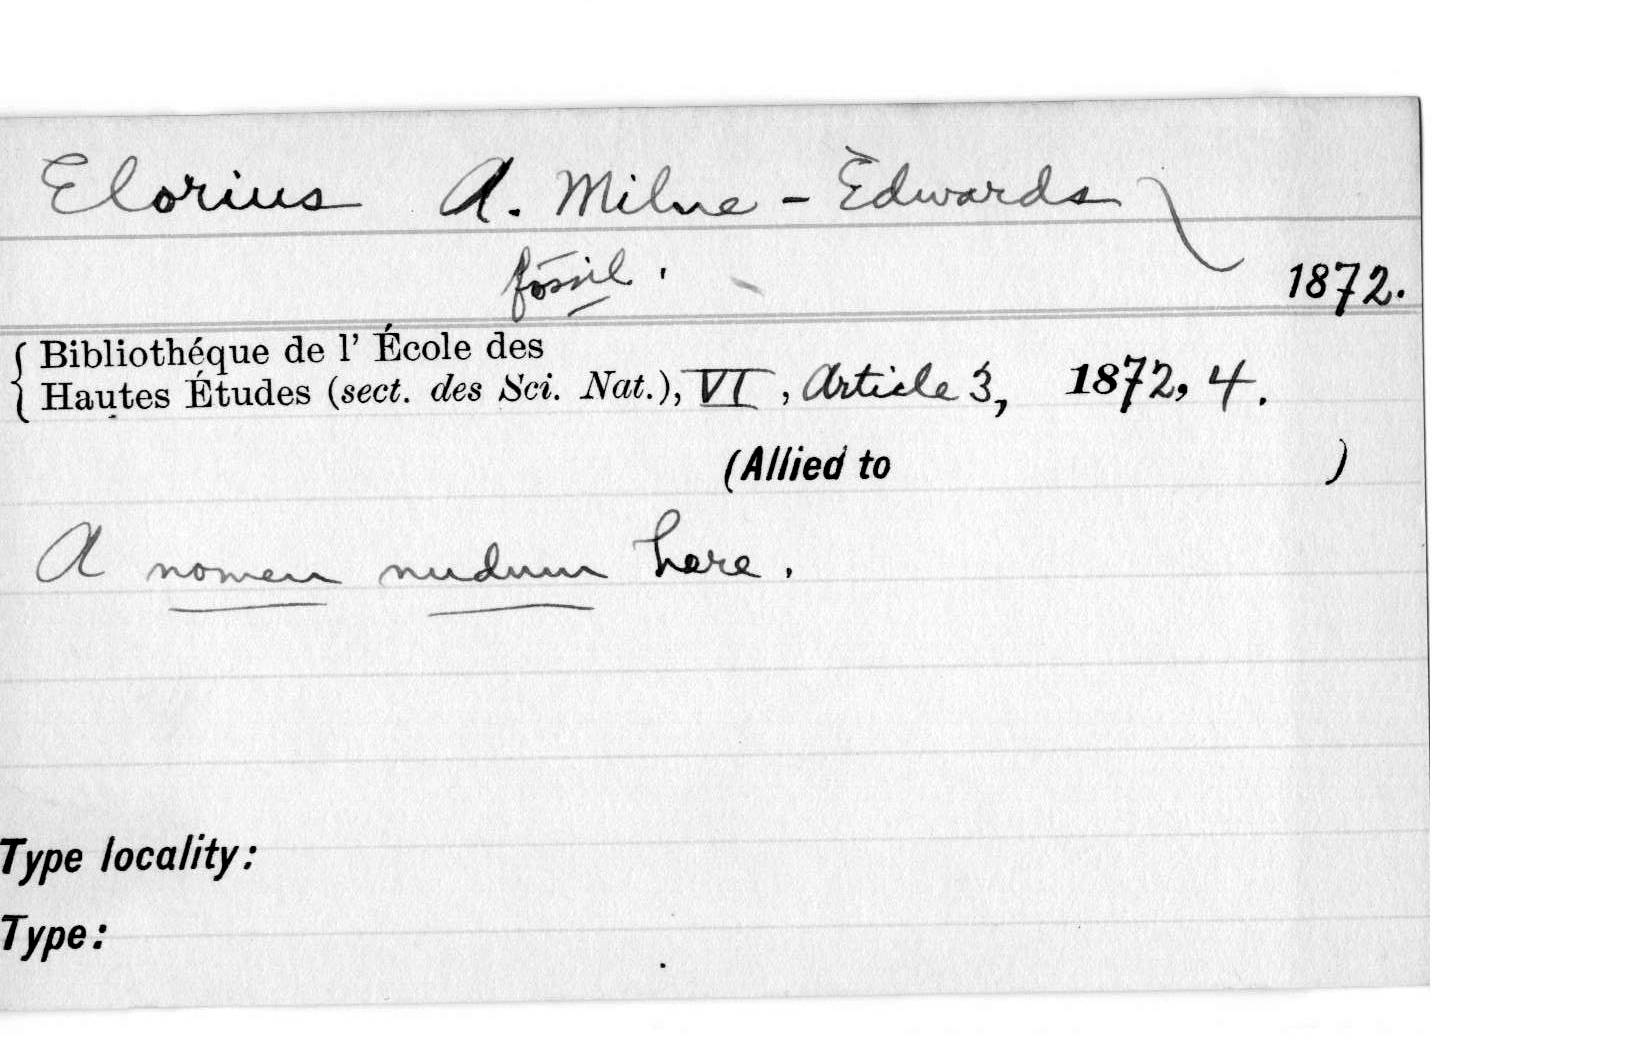 Elorius A. Milne-Edwards
fossil.
1872.
Bibliothéque de l' École des
Hautes Études (sect. des Sci. Nat.), VI, Article 3, 1872, 4.
(Allied to )
A nomen nudum here.
Type locality:
Type: